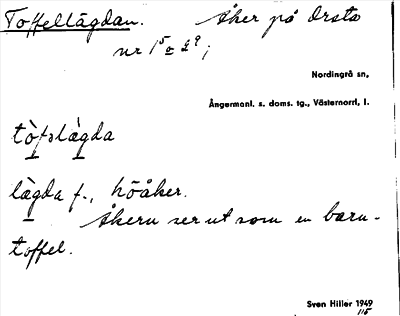 Toffellägdan. Åker på Orsta
nr 1⁵ o 2⁹;
Nordingrå sn,
Ångermanl. s. doms. tg., Västernorrl, l.
tòfəlàgda
lägda f., höåker.
Åkern ser ut som en barn-
toffel.
Sven Hiller 1949